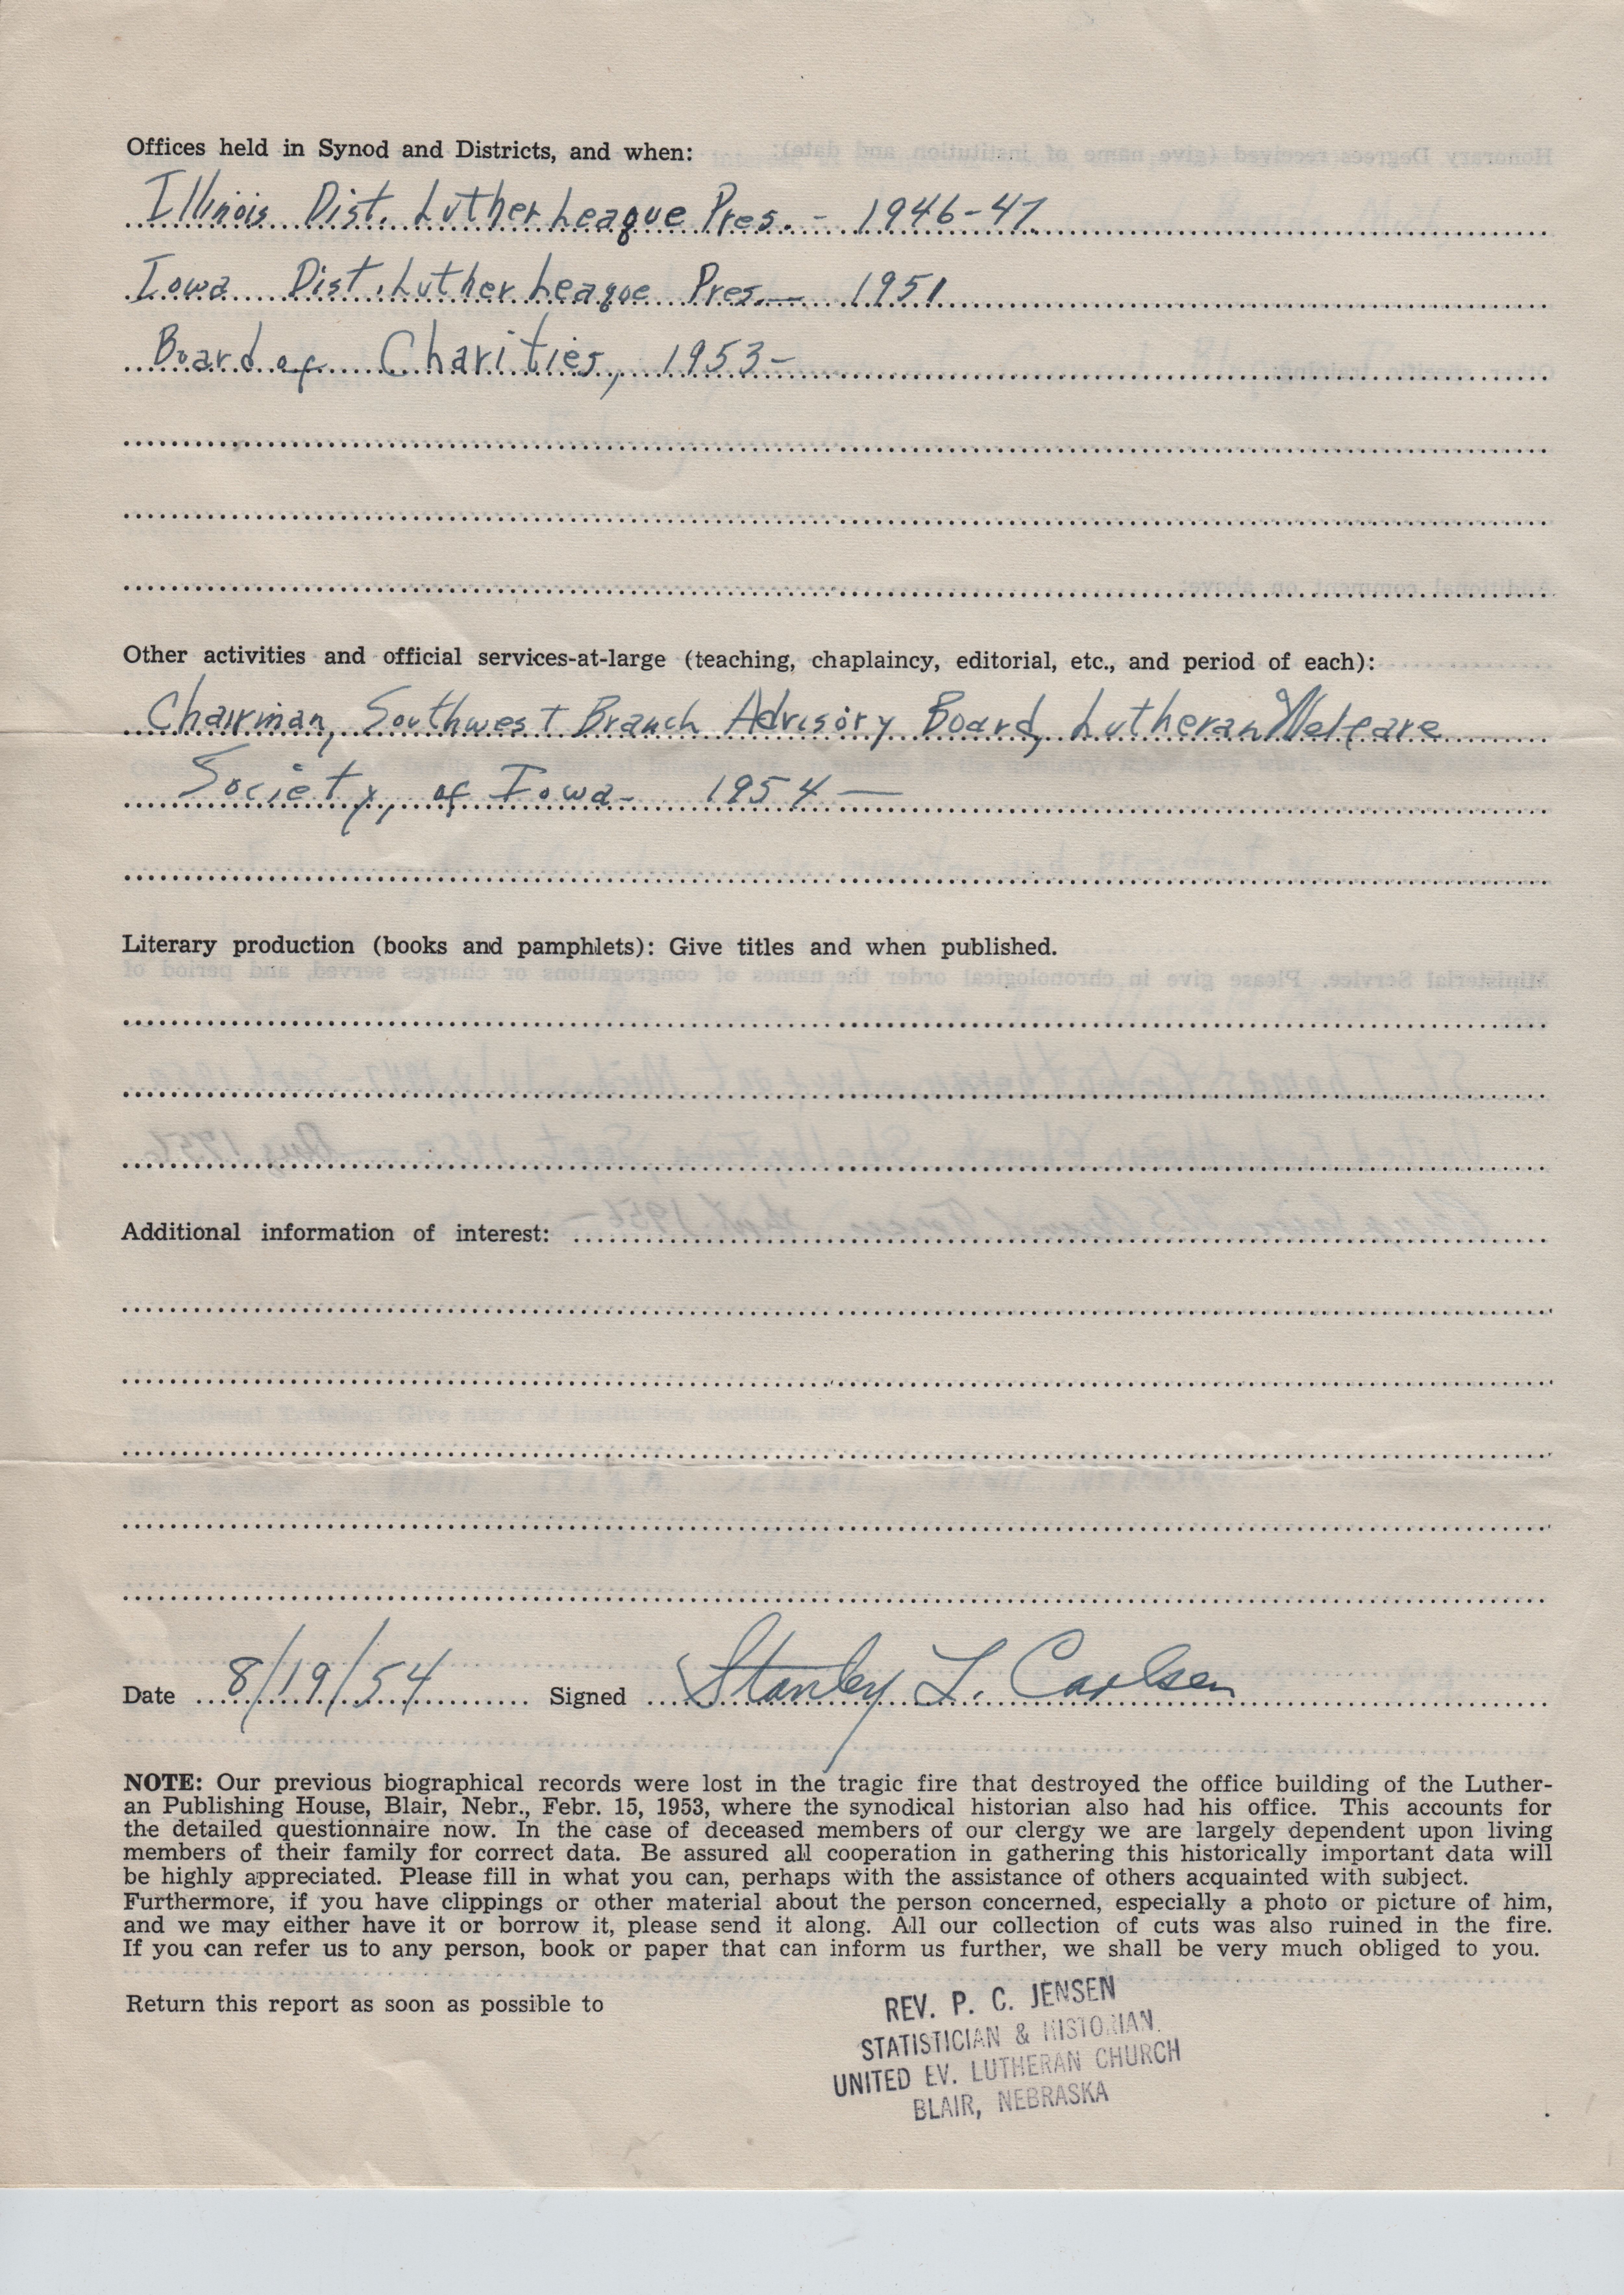 Offices held in Synod and Districts, and when:
Illinois Dist. Luther League Pres. - 1946-47
Iowa Dist. Luther League Pres. — 1951
Board of Charities, 1953-
Other activities and official services-at-large (teaching, chaplaincy, editorial, etc., and period of each):
Chairman, Southwest Branch Advisory Board, Lutheran Welfare
Society, of Iowa - 1954 —
Literary production (books and pamphlets): Give titles and when published.
Additional information of interest:
Date 8/19/54 Signed Stanley L. Carlsen
NOTE: Our previous biographical records were lost in the tragic fire that destroyed the office building of the Luther-
an Publishing House, Blair, Nebr., Febr. 15, 1953, where the synodical historian also had his office. This accounts for
the detailed questionnaire now. In the case of deceased members of our clergy we are largely dependent upon living
members of their family for correct data. Be assured all cooperation in gathering this historically important data will
be highly appreciated. Please fill in what you can, perhaps with the assistance of others acquainted with subject.
Furthermore, if you have clippings or other material about the person concerned, especially a photo or picture of him,
and we may either have it or borrow it, please send it along. All our collection of cuts was also ruined in the fire.
If you can refer us to any person, book or paper that can inform us further, we shall be very much obliged to you.
Return this report as soon as possible to
REV. P. C. JENSEN
STATISTICIAN & HISTORIAN
UNITED EV. LUTHERAN CHURCH
BLAIR, NEBRASKA